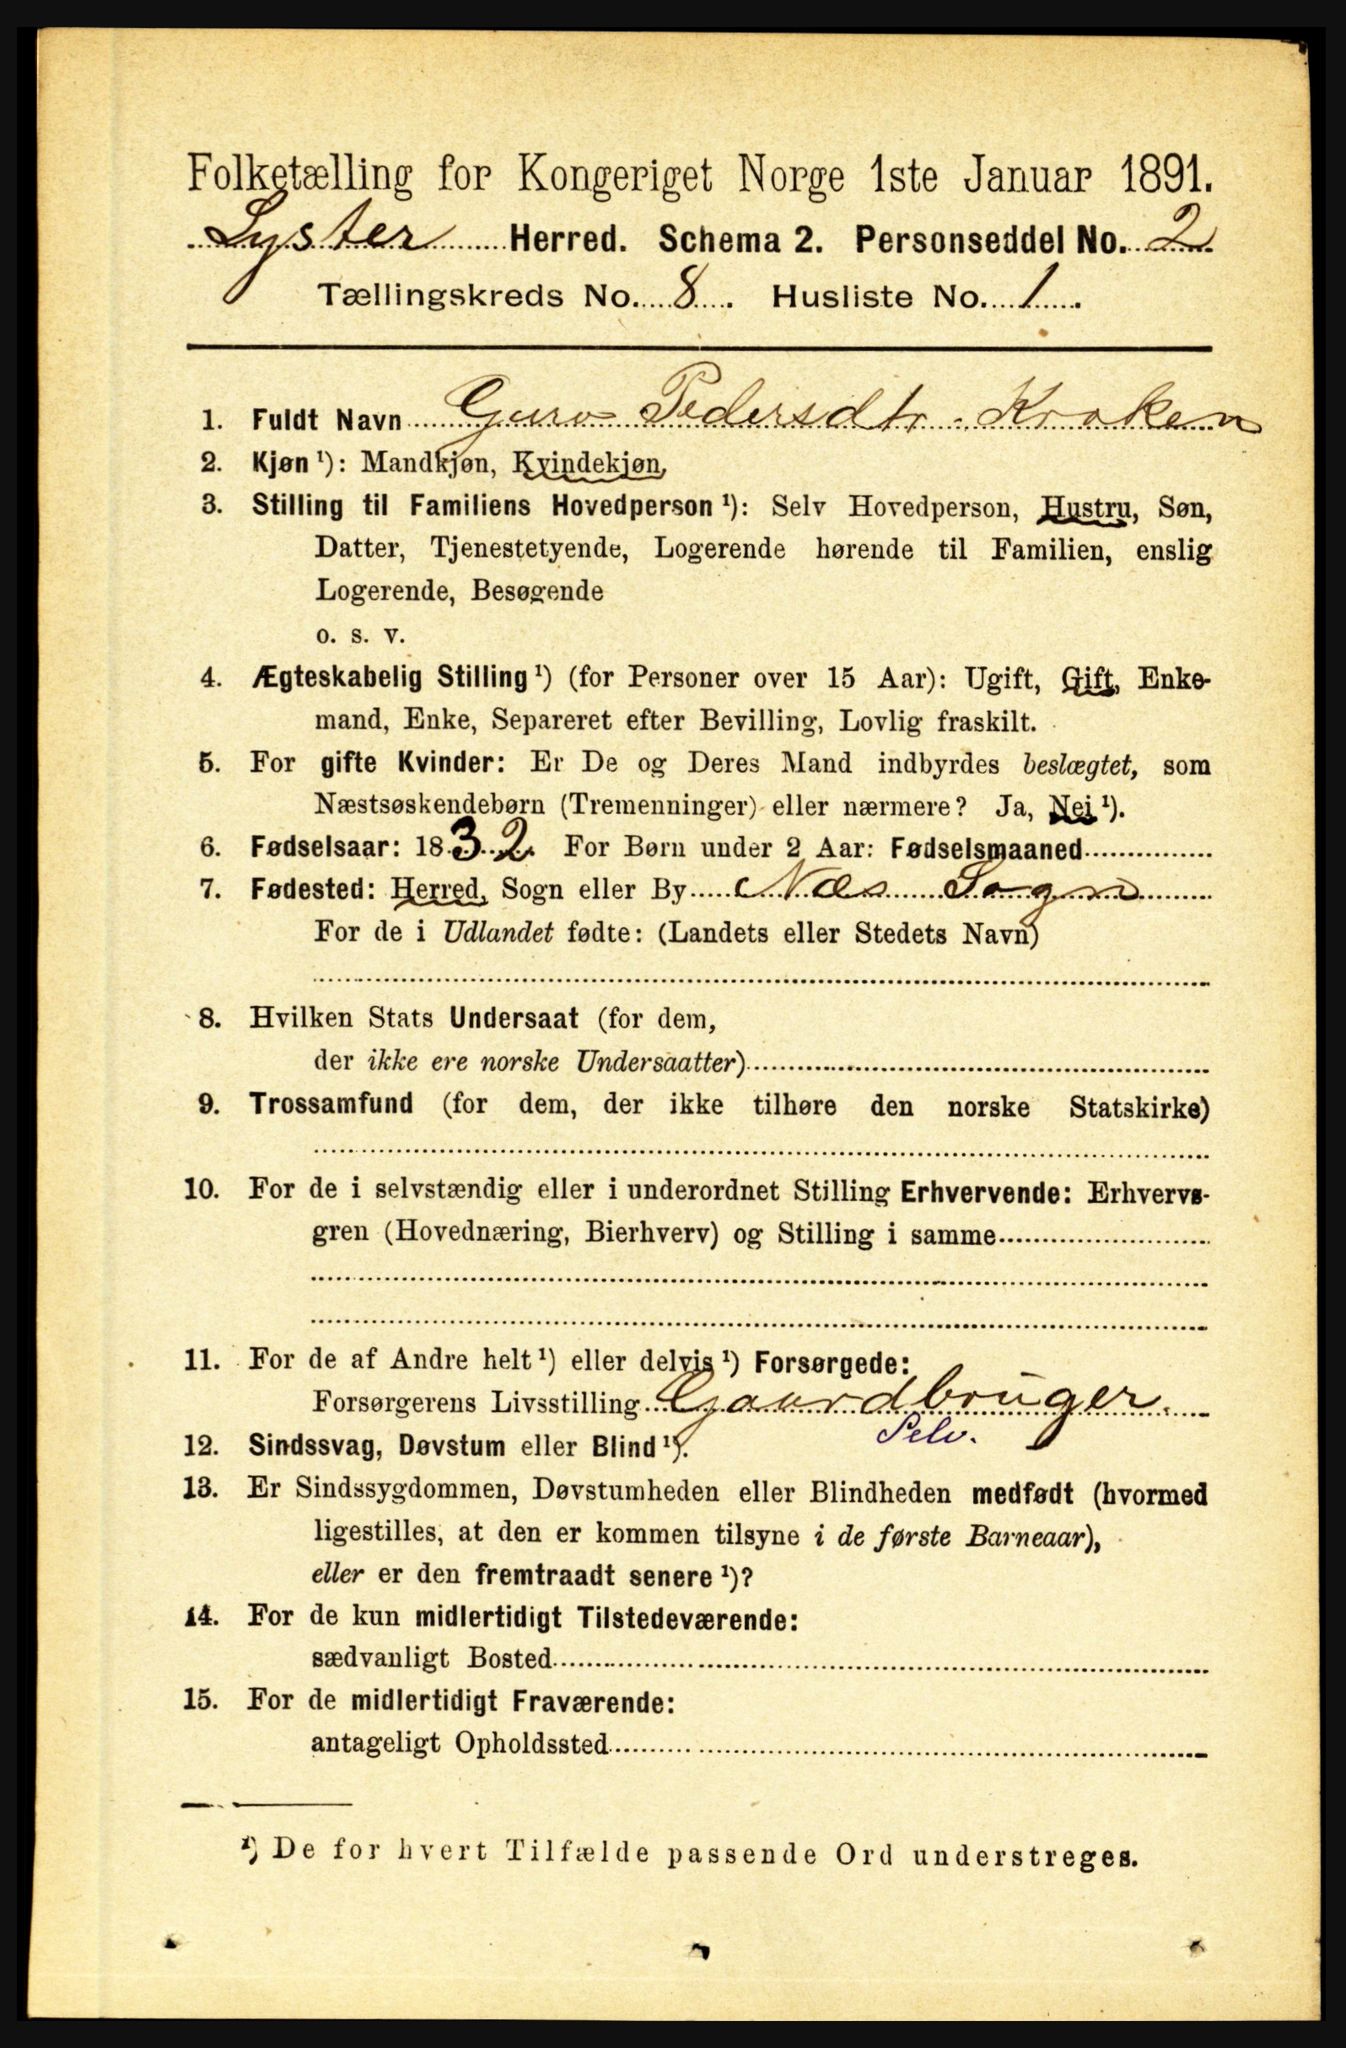 Folketælling for Kongeriget Norge 1ste Januar 1891.
Lyster Herred. Schema 2. Personseddel No. 2
Tællingskreds No. 8. Husliste No. 1.
1. Fuldt Navn Guro Pedersdtr. Kroken
2. Kjøn ¹): Mandkjøn, Kvindekjøn,
3. Stilling til Familiens Hovedperson ¹): Selv Hovedperson, Hustru, Søn,
Datter, Tjenestetyende, Logerende hørende til Familien, enslig
Logerende, Besøgende
o. s. v.
4. Ægteskabelig Stilling ¹) (for Personer over 15 Aar): Ugift, Gift, Enke-
mand, Enke, Separeret efter Bevilling, Lovlig fraskilt.
5. For gifte Kvinder: Er De og Deres Mand indbyrdes beslægtet, som
Næstsøskendebørn (Tremenninger) eller nærmere? Ja, Nei ¹).
6. Fødselsaar: 1832. For Børn under 2 Aar: Fødselsmaaned
7. Fødested: Herred, Sogn eller By Næs Sogn
For de i Udlandet fødte: (Landets eller Stedets Navn)
8. Hvilken Stats Undersaat (for dem,
der ikke ere norske Undersaatter)
9. Trossamfund (for dem, der ikke tilhøre den norske Statskirke)
10. For de i selvstændig eller i underordnet Stilling Erhvervende: Erhvervs-
gren (Hovednæring, Bierhverv) og Stilling i samme
11. For de af Andre helt ¹) eller delvis ¹) Forsørgede:
Forsørgerens Livsstilling Gaardbruger.
Selv.
12. Sindssvag, Døvstum eller Blind ¹).
13. Er Sindssygdommen, Døvstumheden eller Blindheden medfødt (hvormed
ligestilles, at den er kommen tilsyne i de første Barneaar),
eller er den fremtraadt senere ¹)?
14. For de kun midlertidigt Tilstedeværende:
sædvanligt Bosted
15. For de midlertidigt Fraværende:
antageligt Opholdssted
¹) De for hvert Tilfælde passende Ord understreges.